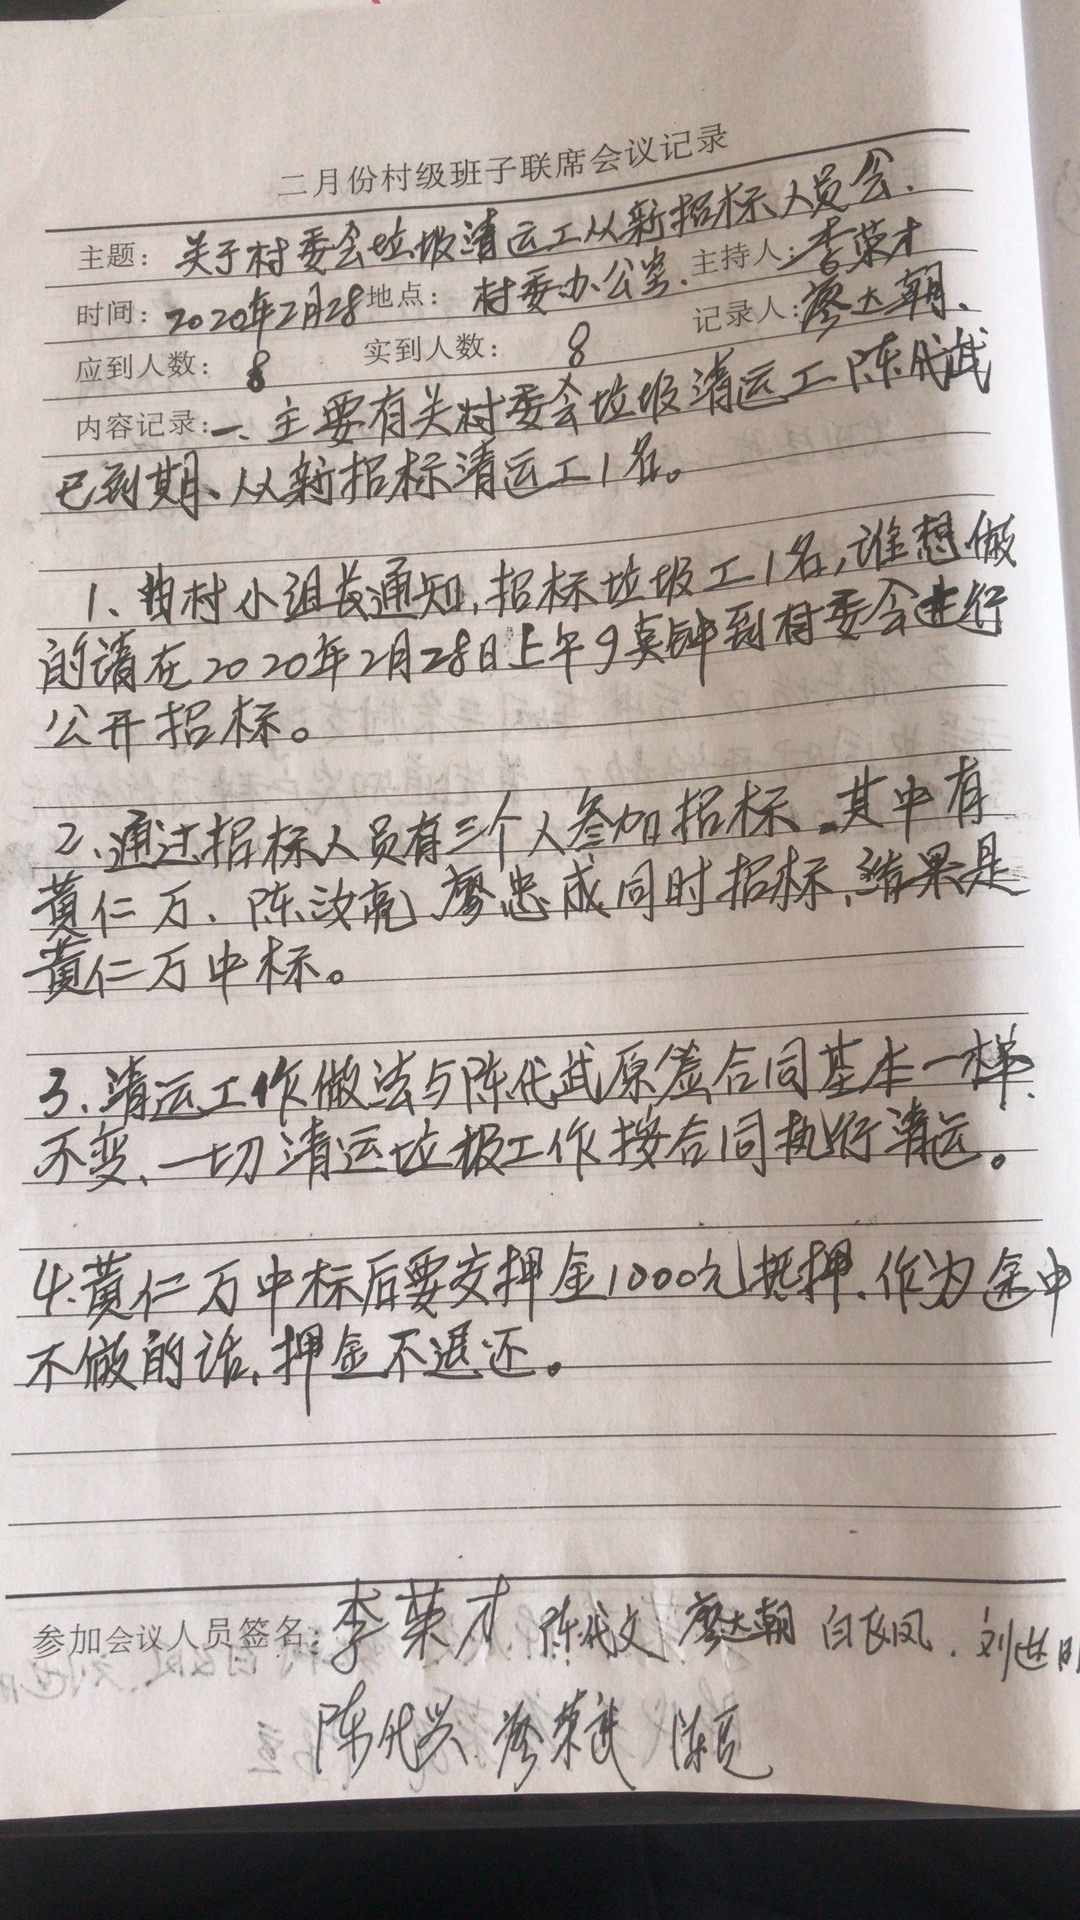 二月份村级班子联席会议记录
主题：关于村委会垃圾清运工从新招标人员会.
主持人：李荣才
时间：2020年2月28 地点：村委办公室.
记录人：廖达朝、
应到人数：8 实到人数：8
内容记录：一、主要有关村委会垃圾清运工陈代武
已到期、从新招标清运工1名。
1、由村小组长通知,招标垃圾工1名,谁想做
的请在2020年2月28日上午9点钟到村委会进行
公开招标。
2、通过招标人员有三个人参加招标。其中有
黄仁万、陈汝亮、廖忠成同时招标,结果是
黄仁万中标。
3、清运工作做法与陈代武原签合同基本一样
不变、一切清运垃圾工作按合同执行清运。
4.黄仁万中标后要交押金1000元抵押.作为途中
不做的话,押金不退还。
参加会议人员签名：李荣才 陈代文 廖达朝 白飞凤. 刘进明
陈代兴 廖荣武 陈亮